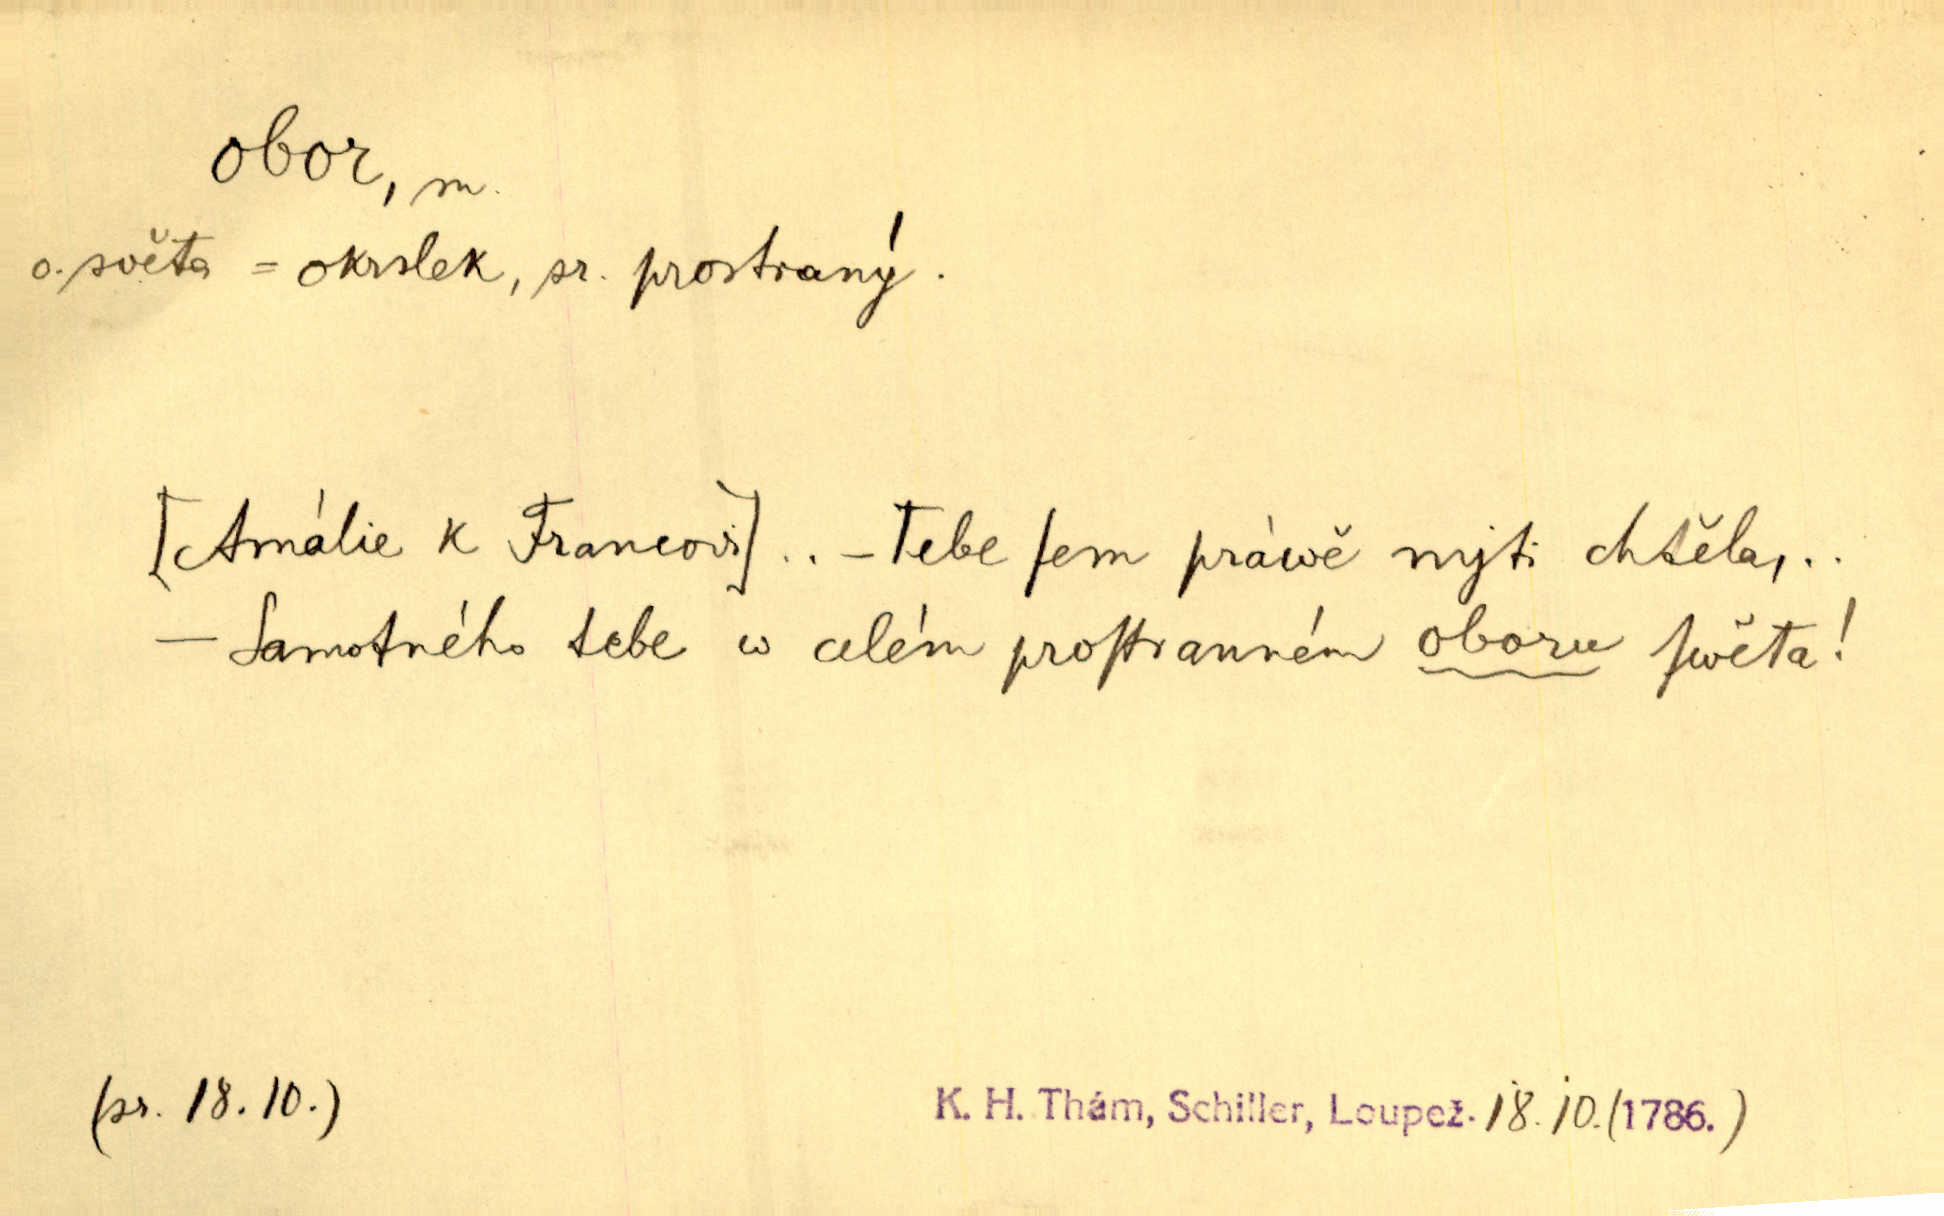 obor, m.
o. světa = okrslek, sr. prostraný.
[Amálie k Francovi] .. – Tebe ſem práwě mjti chtěla, ..
— Samotného tebe w celém proſtranném oboru ſwěta!
(sr. 18. 10.)
K. H. Thám, Schiller, Loupež. 18. 10. (1786.)